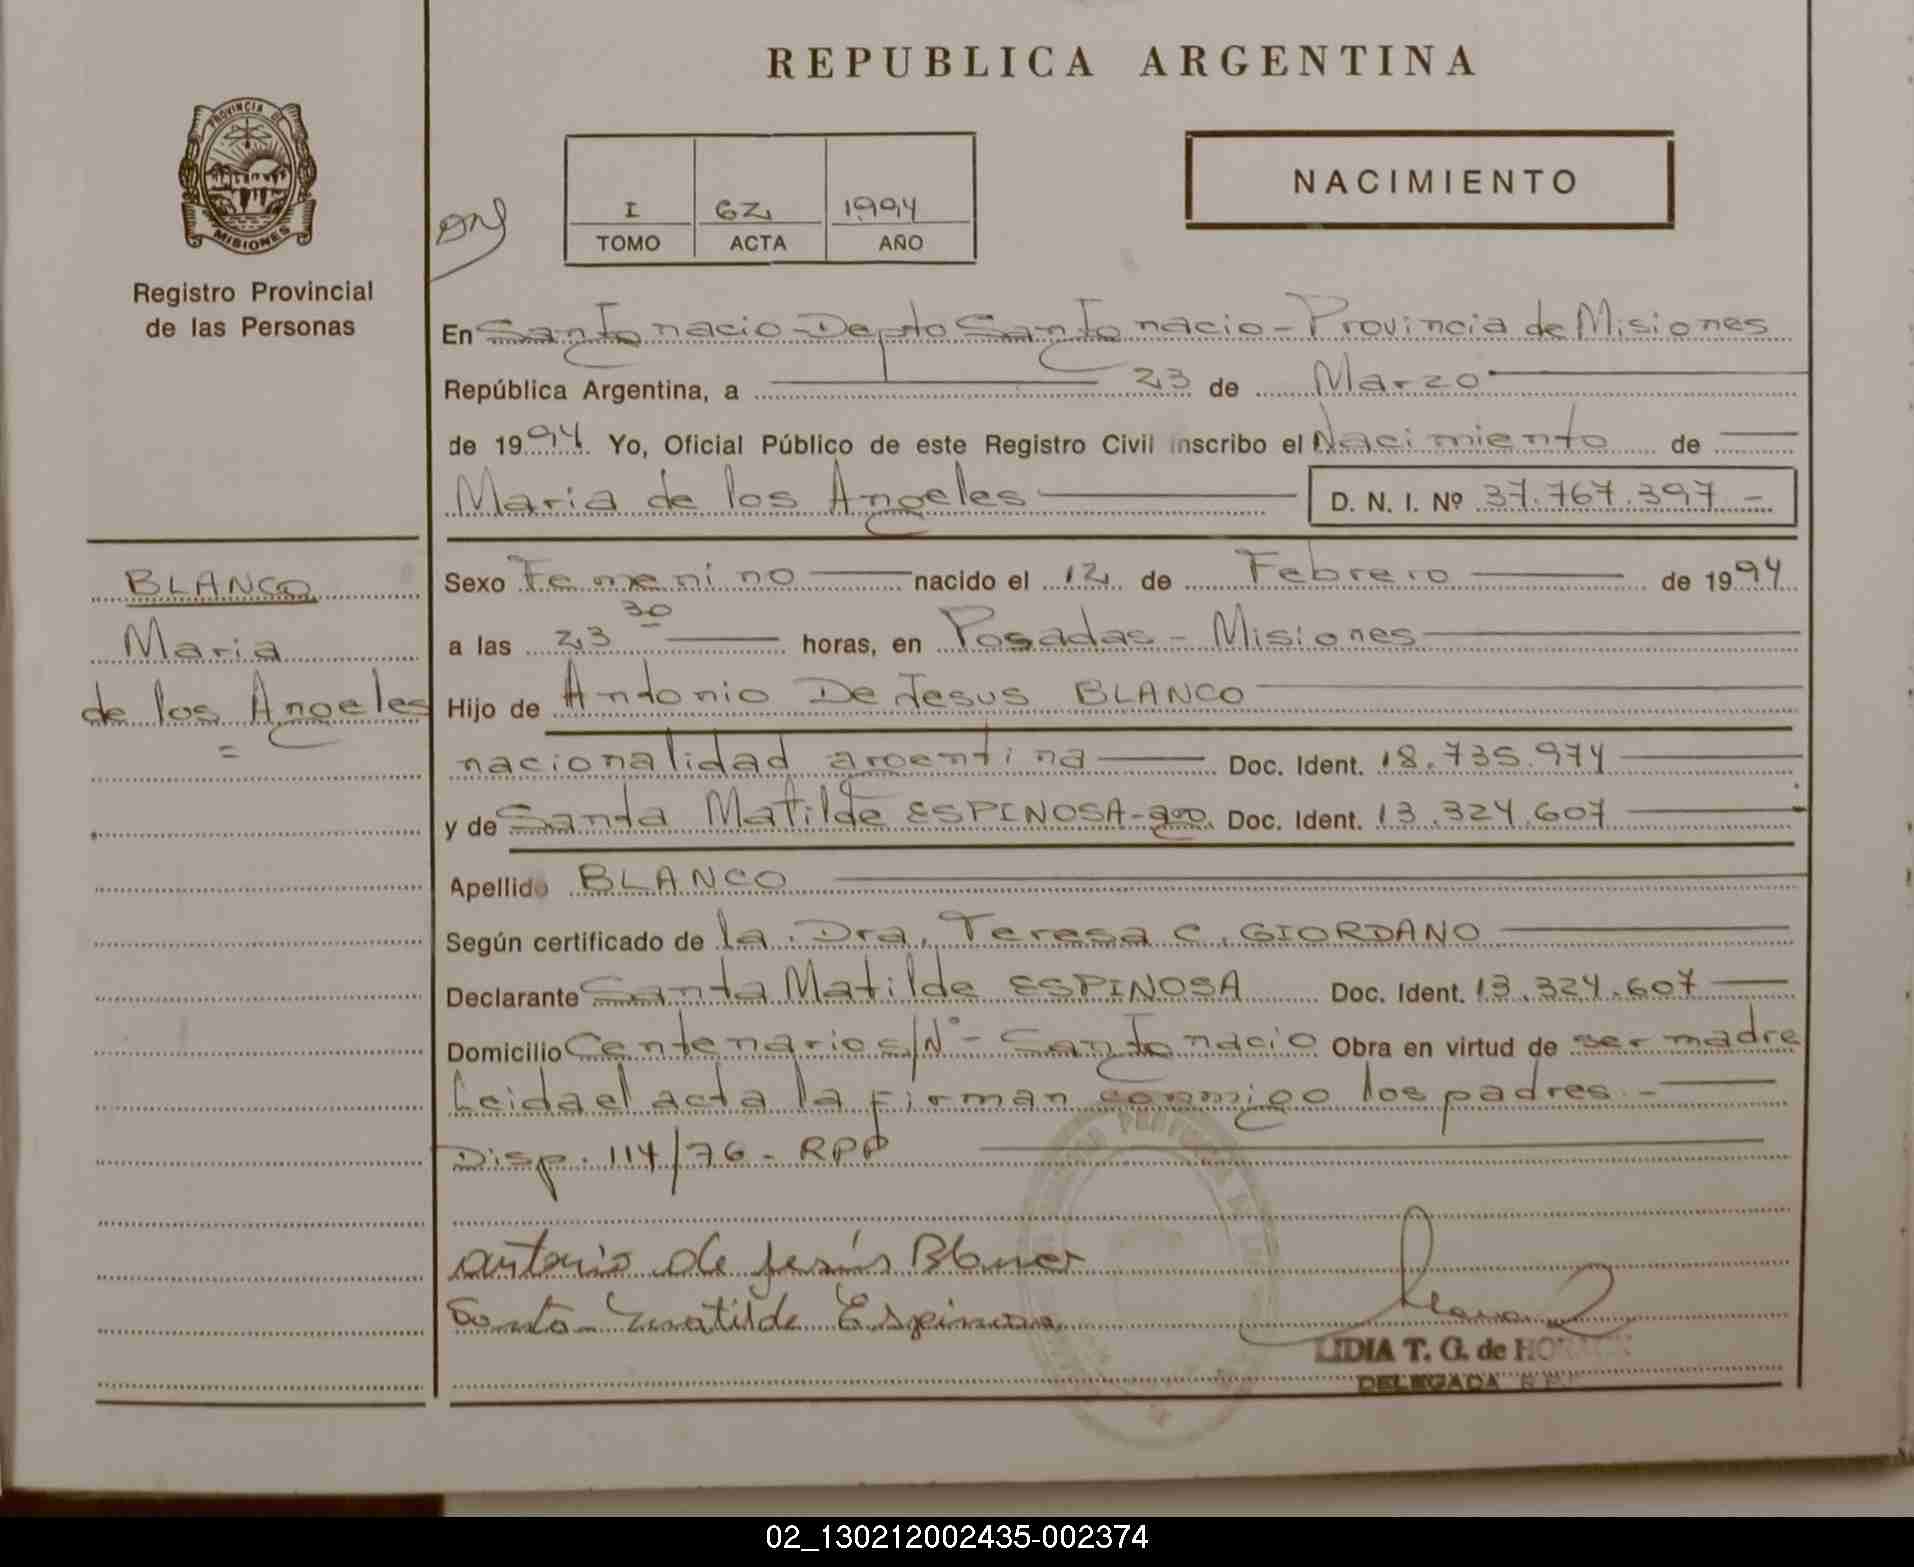 REPUBLICA ARGENTINA
PROVINCIA DE
MISIONES
Registro Provincial
de las Personas
I 62 1994
TOMO ACTA AÑO
NACIMIENTO
En San Ignacio - Depto San Ignacio - Provincia de Misiones
República Argentina, a 23 de Marzo
de 1994 Yo, Oficial Público de este Registro Civil inscribo el Nacimiento de
Maria de los Angeles D. N. I. Nº 37.767.397 -
BLANCO
Maria
de los Angeles
=
Sexo Femenino nacido el 12 de Febrero de 1994
a las 23 30 horas, en Posadas - Misiones
Hijo de Antonio De Jesus BLANCO
nacionalidad argentina Doc. Ident. 18.735.974
y de Santa Matilde ESPINOSA - Doc. Ident. 13.324.607
Apellido BLANCO
Según certificado de la Dra. Teresa C. GIORDANO
Declarante Santa Matilde ESPINOSA Doc. Ident. 13.324.607
Domicilio Centenario S/Nº - San Ignacio Obra en virtud de ser madre
Leida el acta la firman conmigo los padres. -
Disp. 114/76 - RPP
Antonio de Jesús Blanco
Santa Matilde Espinosa
LIDIA T. G. de
DELEGADA
02_130212002435-002374